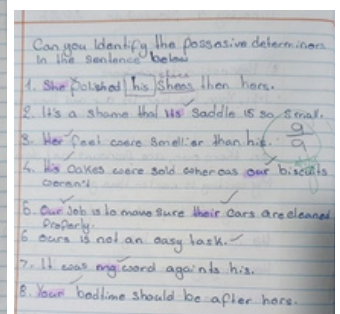 Can you Identify the possesive determiners
In the sentence below
shoes
1. She Polished his Sheos then hers.
2. It's a shame that its Saddle is so small.
3. Her feet were Smeller than his.
9/9
4. His Cakes were sold wheras our biscuits
weren't
5. Our Job is to make sure their cars are cleaned
Properly.
6 ours is not an easy task.
7. It was my word againts his.
8. Your bedtime should be after hers.